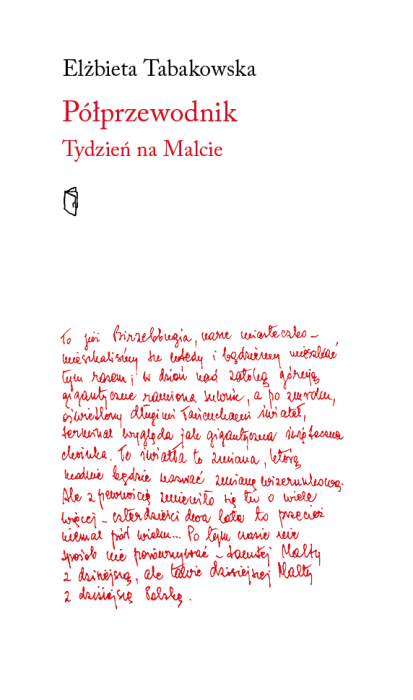 Elżbieta Tabakowska
Półprzewodnik
Tydzień na Malcie
To już Birzebbugia, nasze miasteczko –
mieszkaliśmy tu wtedy i będziemy mieszkać
tym razem; w dzień nad zatoką górują
gigantyczne ramiona suwnic, a po zmroku,
oświetlony długimi łańcuchami świateł,
terminal wygląda jak gigantyczna świąteczna
choinka. Te światła to zmiana, którą
modnie będzie nazwać zmianą wizerunkową.
Ale z pewnością zmieniło się tu o wiele
więcej – czterdzieści dwa lata to przecież
niemal pół wieku... Po tym czasie nie
sposób nie porównywać – dawnej Malty
z dzisiejszą, ale także dzisiejszej Malty
z dzisiejszą Polską.